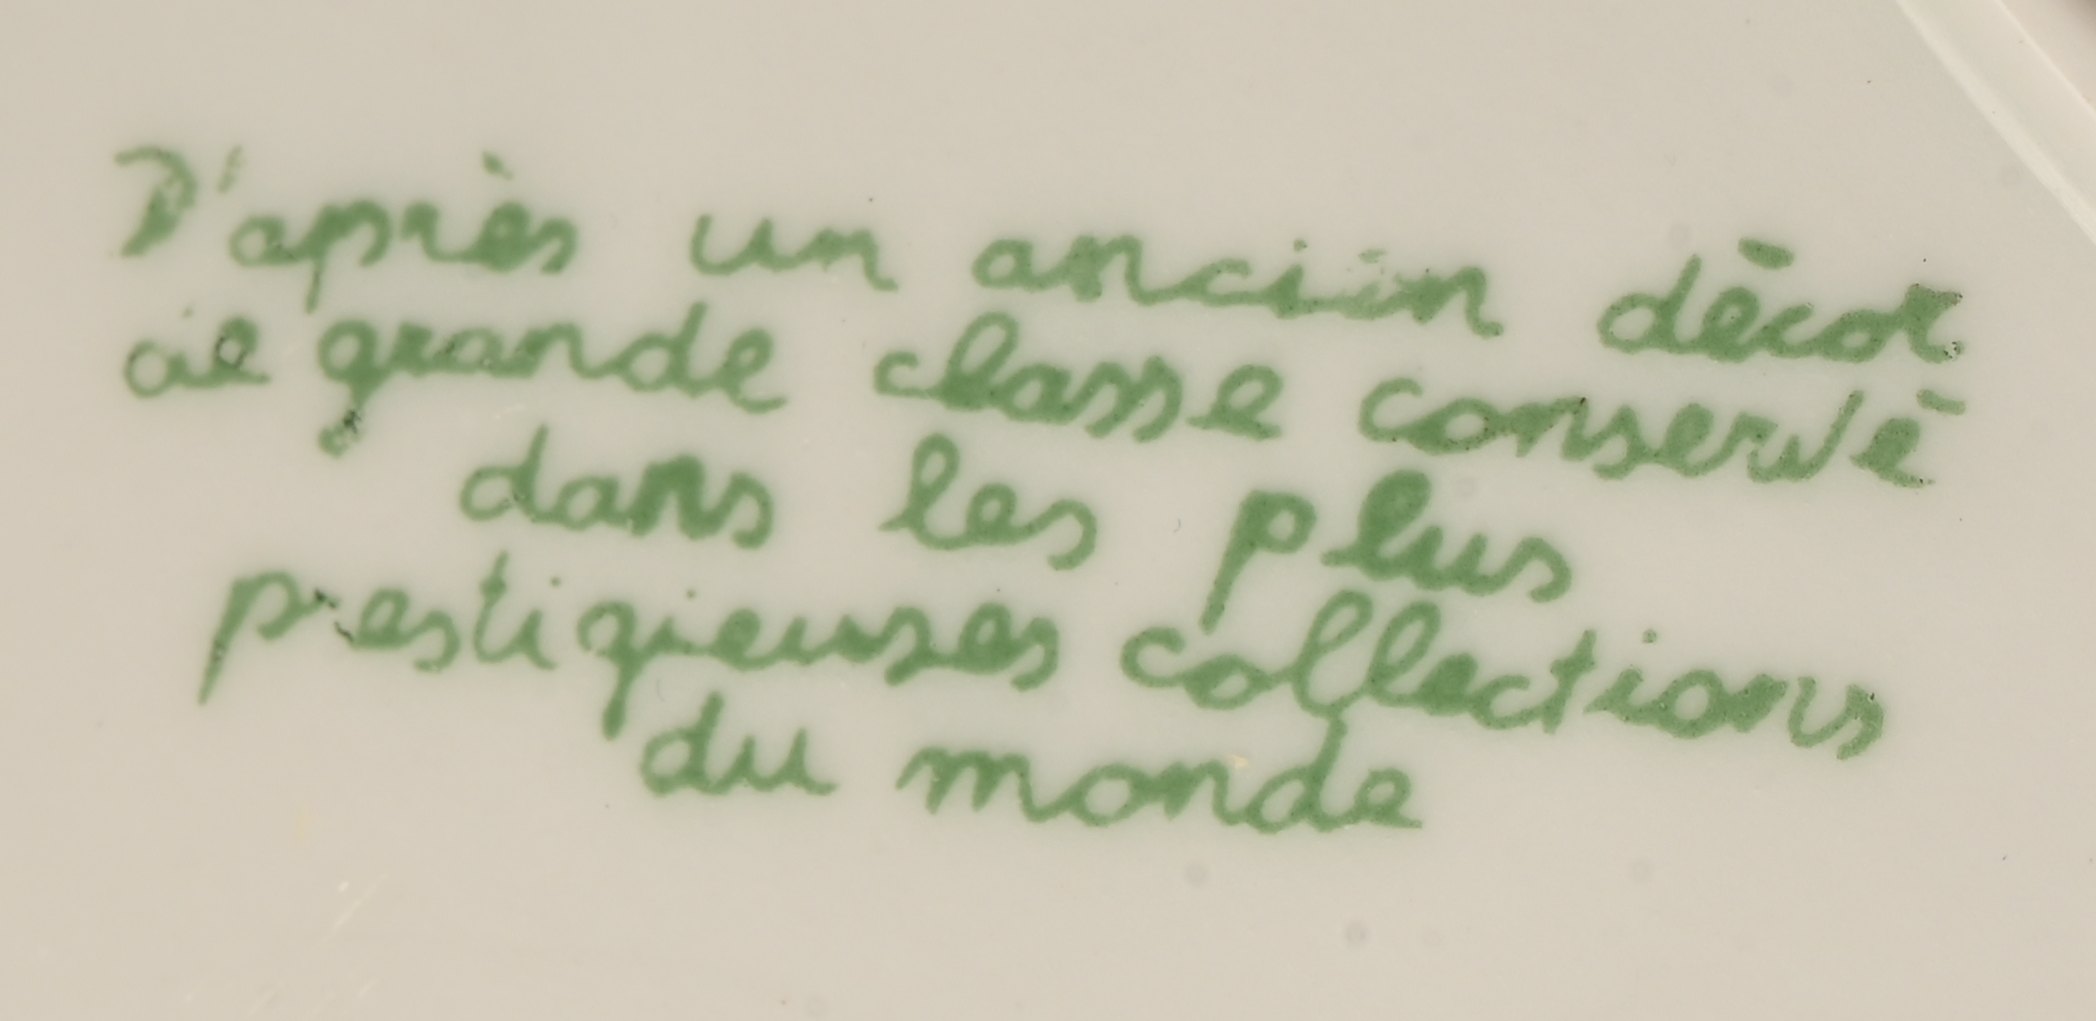 D'après un ancien décor
de grande classe conservé
dans les plus
prestigieuses collections
du monde